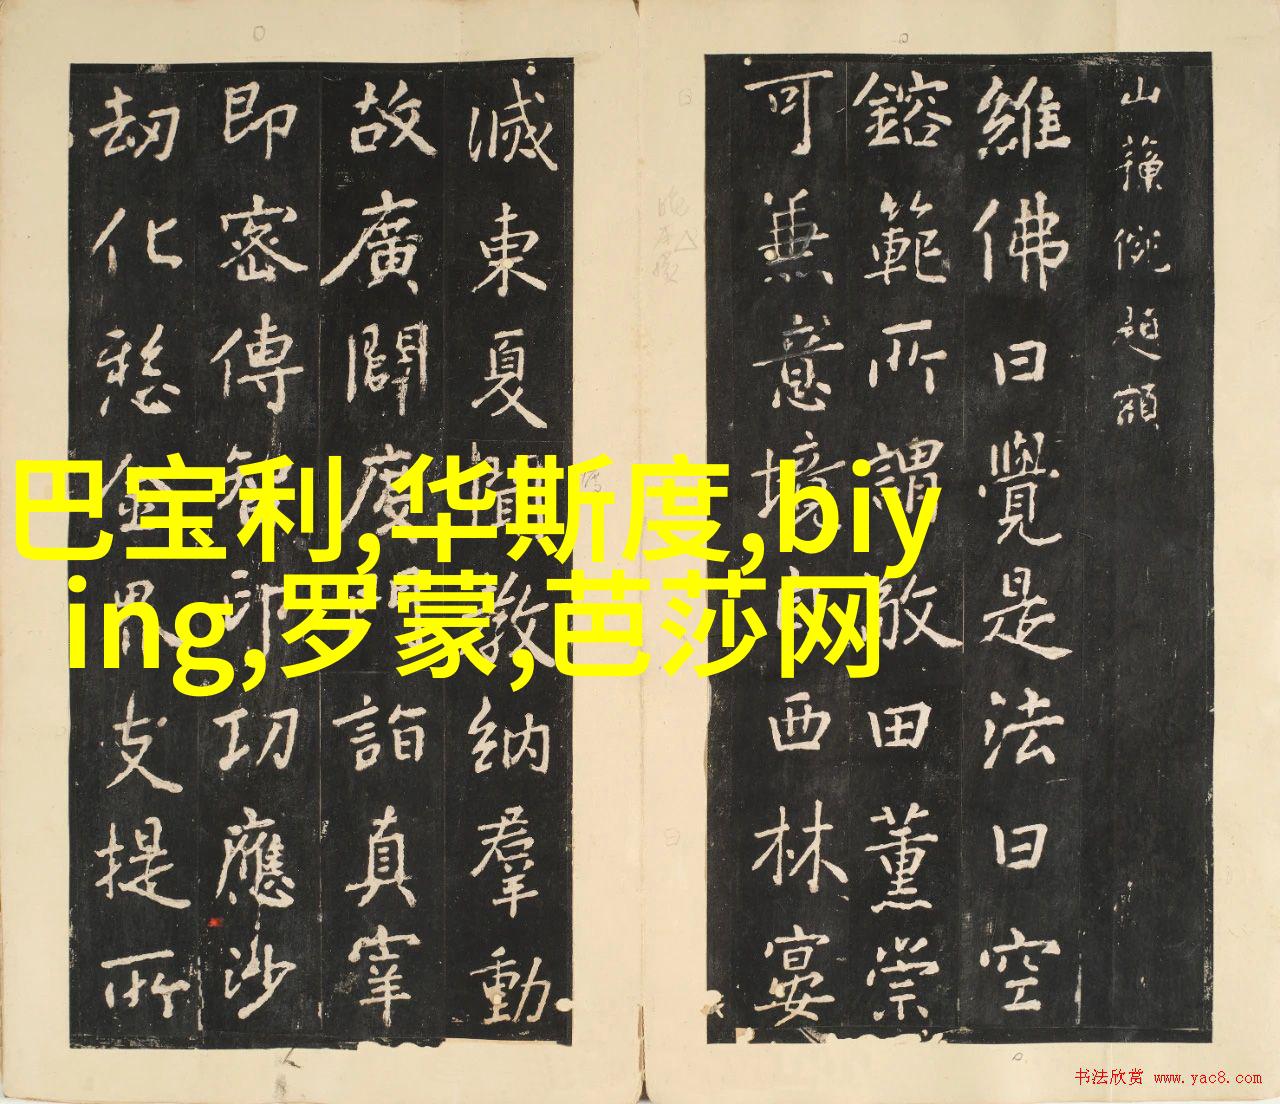 山蔭
題額
維佛曰覺是法曰空
鎔範所謂 田薰崇
可兼意境 西林宴
滅東夏 教納羣動
故廣闢度 詣真宰
即密傳智印功應沙
劫化愁金界支提所
巴宝利,华斯度,biy
ing,罗蒙,芭莎网
书法欣赏 www.yac8.com